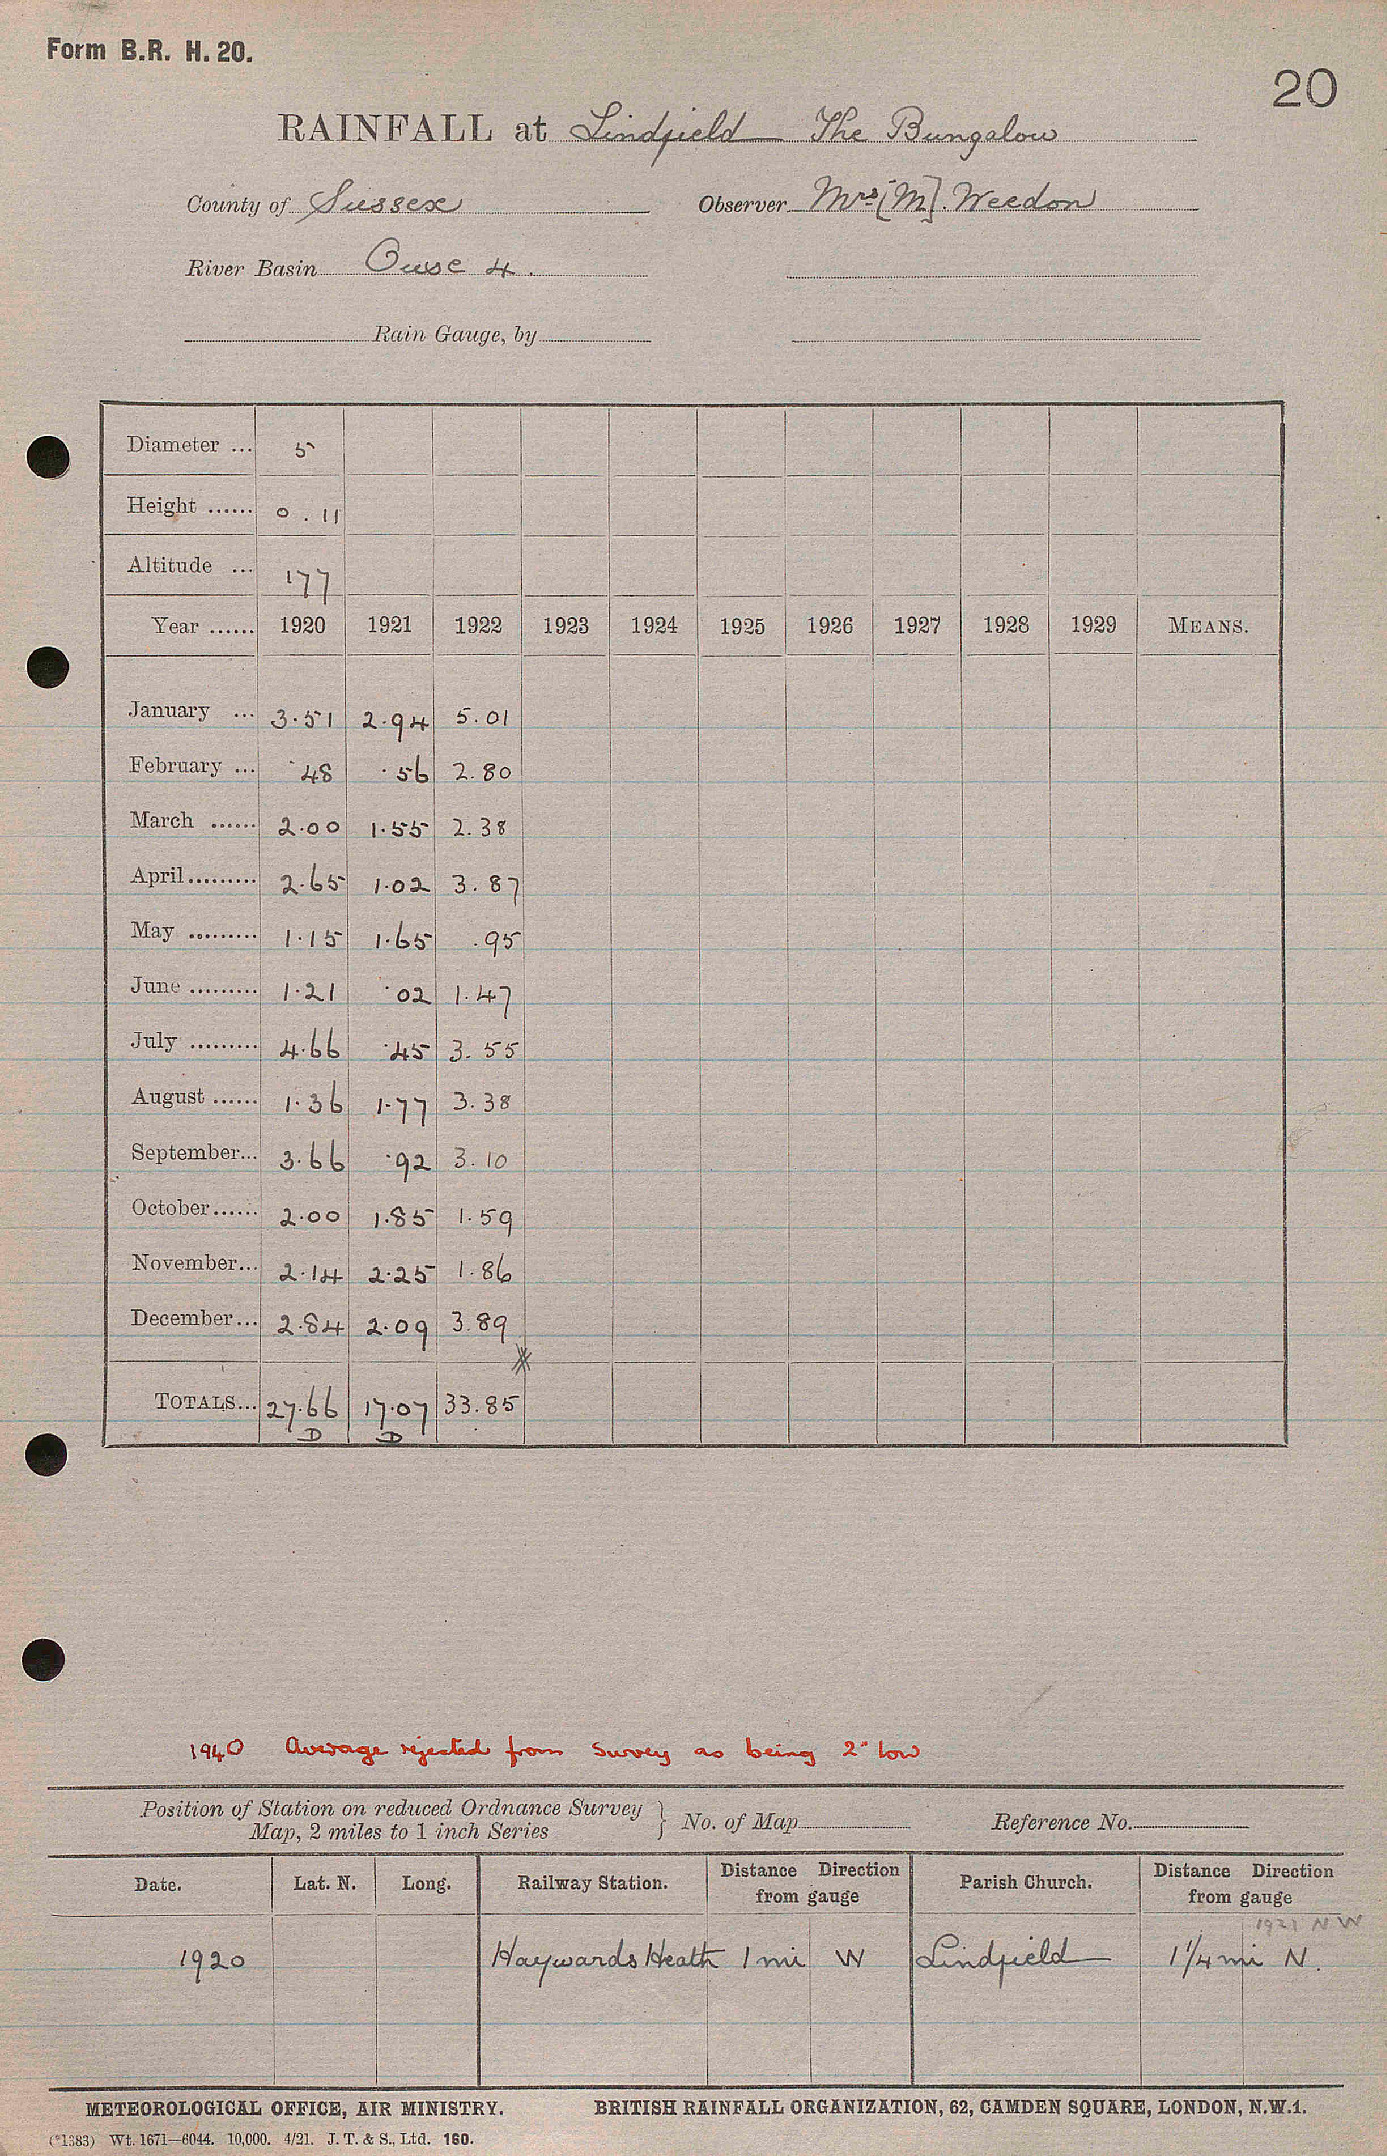 Form B.R. H. 20.
20
RAINFALL at Lindfield The Bungalow
County of Sussex Observer Mrs [M]. Weedon
River Basin Ouse 4.
Rain Gauge, by
Diameter ... 5
Height ...... 0.11
Altitude ... 177
Year ...... 1920 1921 1922 1923 1924 1925 1926 1927 1928 1929 MEANS.
January ... 3.51 2.94 5.01
February ... .48 .56 2.80
March ...... 2.00 1.55 2.38
April ......... 2.65 1.02 3.87
May ......... 1.15 1.65 .95
June ......... 1.21 .02 1.47
July ......... 4.66 .45 3.55
August ...... 1.36 1.77 3.38
September... 3.66 .92 3.10
October ...... 2.00 1.85 1.59
November... 2.14 2.25 1.86
December... 2.84 2.09 3.89
TOTALS... 27.66 17.07 33.85
D D
1940 Average rejected from Survey as being 2" low
Position of Station on reduced Ordnance Survey
Map, 2 miles to 1 inch Series } No. of Map Reference No.
Date. Lat. N. Long. Railway Station. Distance Direction from gauge Parish Church. Distance Direction from gauge
1921 NW
1920 Haywards Heath 1 mi W Lindfield 1 1/4 mi N.
METEOROLOGICAL OFFICE, AIR MINISTRY. BRITISH RAINFALL ORGANIZATION, 62, CAMDEN SQUARE, LONDON, N.W.1.
(*1383) Wt. 1671—6044. 10,000. 4/21. J. T. & S., Ltd. 160.